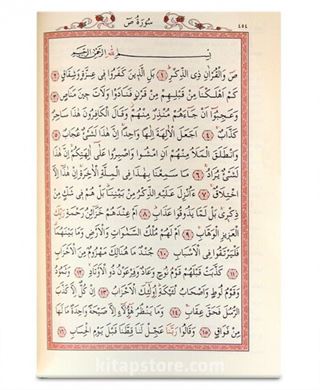 ٤٥٤
سُورَةُ صٓ
بِسْمِ اللّٰهِ الرَّحْمٰنِ الرَّحِيمِ
صٓ وَالْقُرْاٰنِ ذِى الذِّكْرِ ﴿١﴾ بَلِ الَّذِينَ كَفَرُوا فِى عِزَّةٍ وَشِقَاقٍ ﴿٢﴾
كَمْ اَهْلَكْنَا مِنْ قَبْلِهِمْ مِنْ قَرْنٍ فَنَادَوْا وَلَاتَ حِينَ مَنَاصٍ ﴿٣﴾
وَعَجِبُوا اَنْ جَاءَهُمْ مُنْذِرٌ مِنْهُمْ وَقَالَ الْكَافِرُونَ هٰذَا سَاحِرٌ
كَذَّابٌ ﴿٤﴾ اَجَعَلَ الْاٰلِهَةَ اِلٰهًا وَاحِدًا اِنَّ هٰذَا لَشَىْءٌ عُجَابٌ ﴿٥﴾
وَانْطَلَقَ الْمَلَاُ مِنْهُمْ اَنِ امْشُوا وَاصْبِرُوا عَلٰى اٰلِهَتِكُمْ اِنَّ هٰذَا
لَشَىْءٌ يُرَادُ ﴿٦﴾ مَا سَمِعْنَا بِهٰذَا فِى الْمِلَّةِ الْاٰخِرَةِ اِنْ هٰذَا اِلَّا
اخْتِلَاقٌ ﴿٧﴾ ءَاُنْزِلَ عَلَيْهِ الذِّكْرُ مِنْ بَيْنِنَا بَلْ هُمْ فِى شَكٍّ مِنْ
ذِكْرِى بَلْ لَمَّا يَذُوقُوا عَذَابِ ﴿٨﴾ اَمْ عِنْدَهُمْ خَزَائِنُ رَحْمَةِ رَبِّكَ
الْعَزِيزِ الْوَهَّابِ ﴿٩﴾ اَمْ لَهُمْ مُلْكُ السَّمٰوَاتِ وَالْاَرْضِ وَمَا بَيْنَهُمَا
فَلْيَرْتَقُوا فِى الْاَسْبَابِ ﴿١٠﴾ جُنْدٌ مَا هُنَالِكَ مَهْزُومٌ مِنَ الْاَحْزَابِ
﴿١١﴾ كَذَّبَتْ قَبْلَهُمْ قَوْمُ نُوحٍ وَعَادٌ وَفِرْعَوْنُ ذُو الْاَوْتَادِ ﴿١٢﴾ وَثَمُودُ
وَقَوْمُ لُوطٍ وَاَصْحَابُ لْئَيْكَةِ اُولٰئِكَ الْاَحْزَابُ ﴿١٣﴾ اِنْ كُلٌّ اِلَّا كَذَّبَ
الرُّسُلَ فَحَقَّ عِقَابِ ﴿١٤﴾ وَمَا يَنْظُرُ هٰؤُلَاءِ اِلَّا صَيْحَةً وَاحِدَةً مَا لَهَا
مِنْ فَوَاقٍ ﴿١٥﴾ وَقَالُوا رَبَّنَا عَجِّلْ لَنَا قِطَّنَا قَبْلَ يَوْمِ الْحِسَابِ ﴿١٦﴾
kitapstore.com